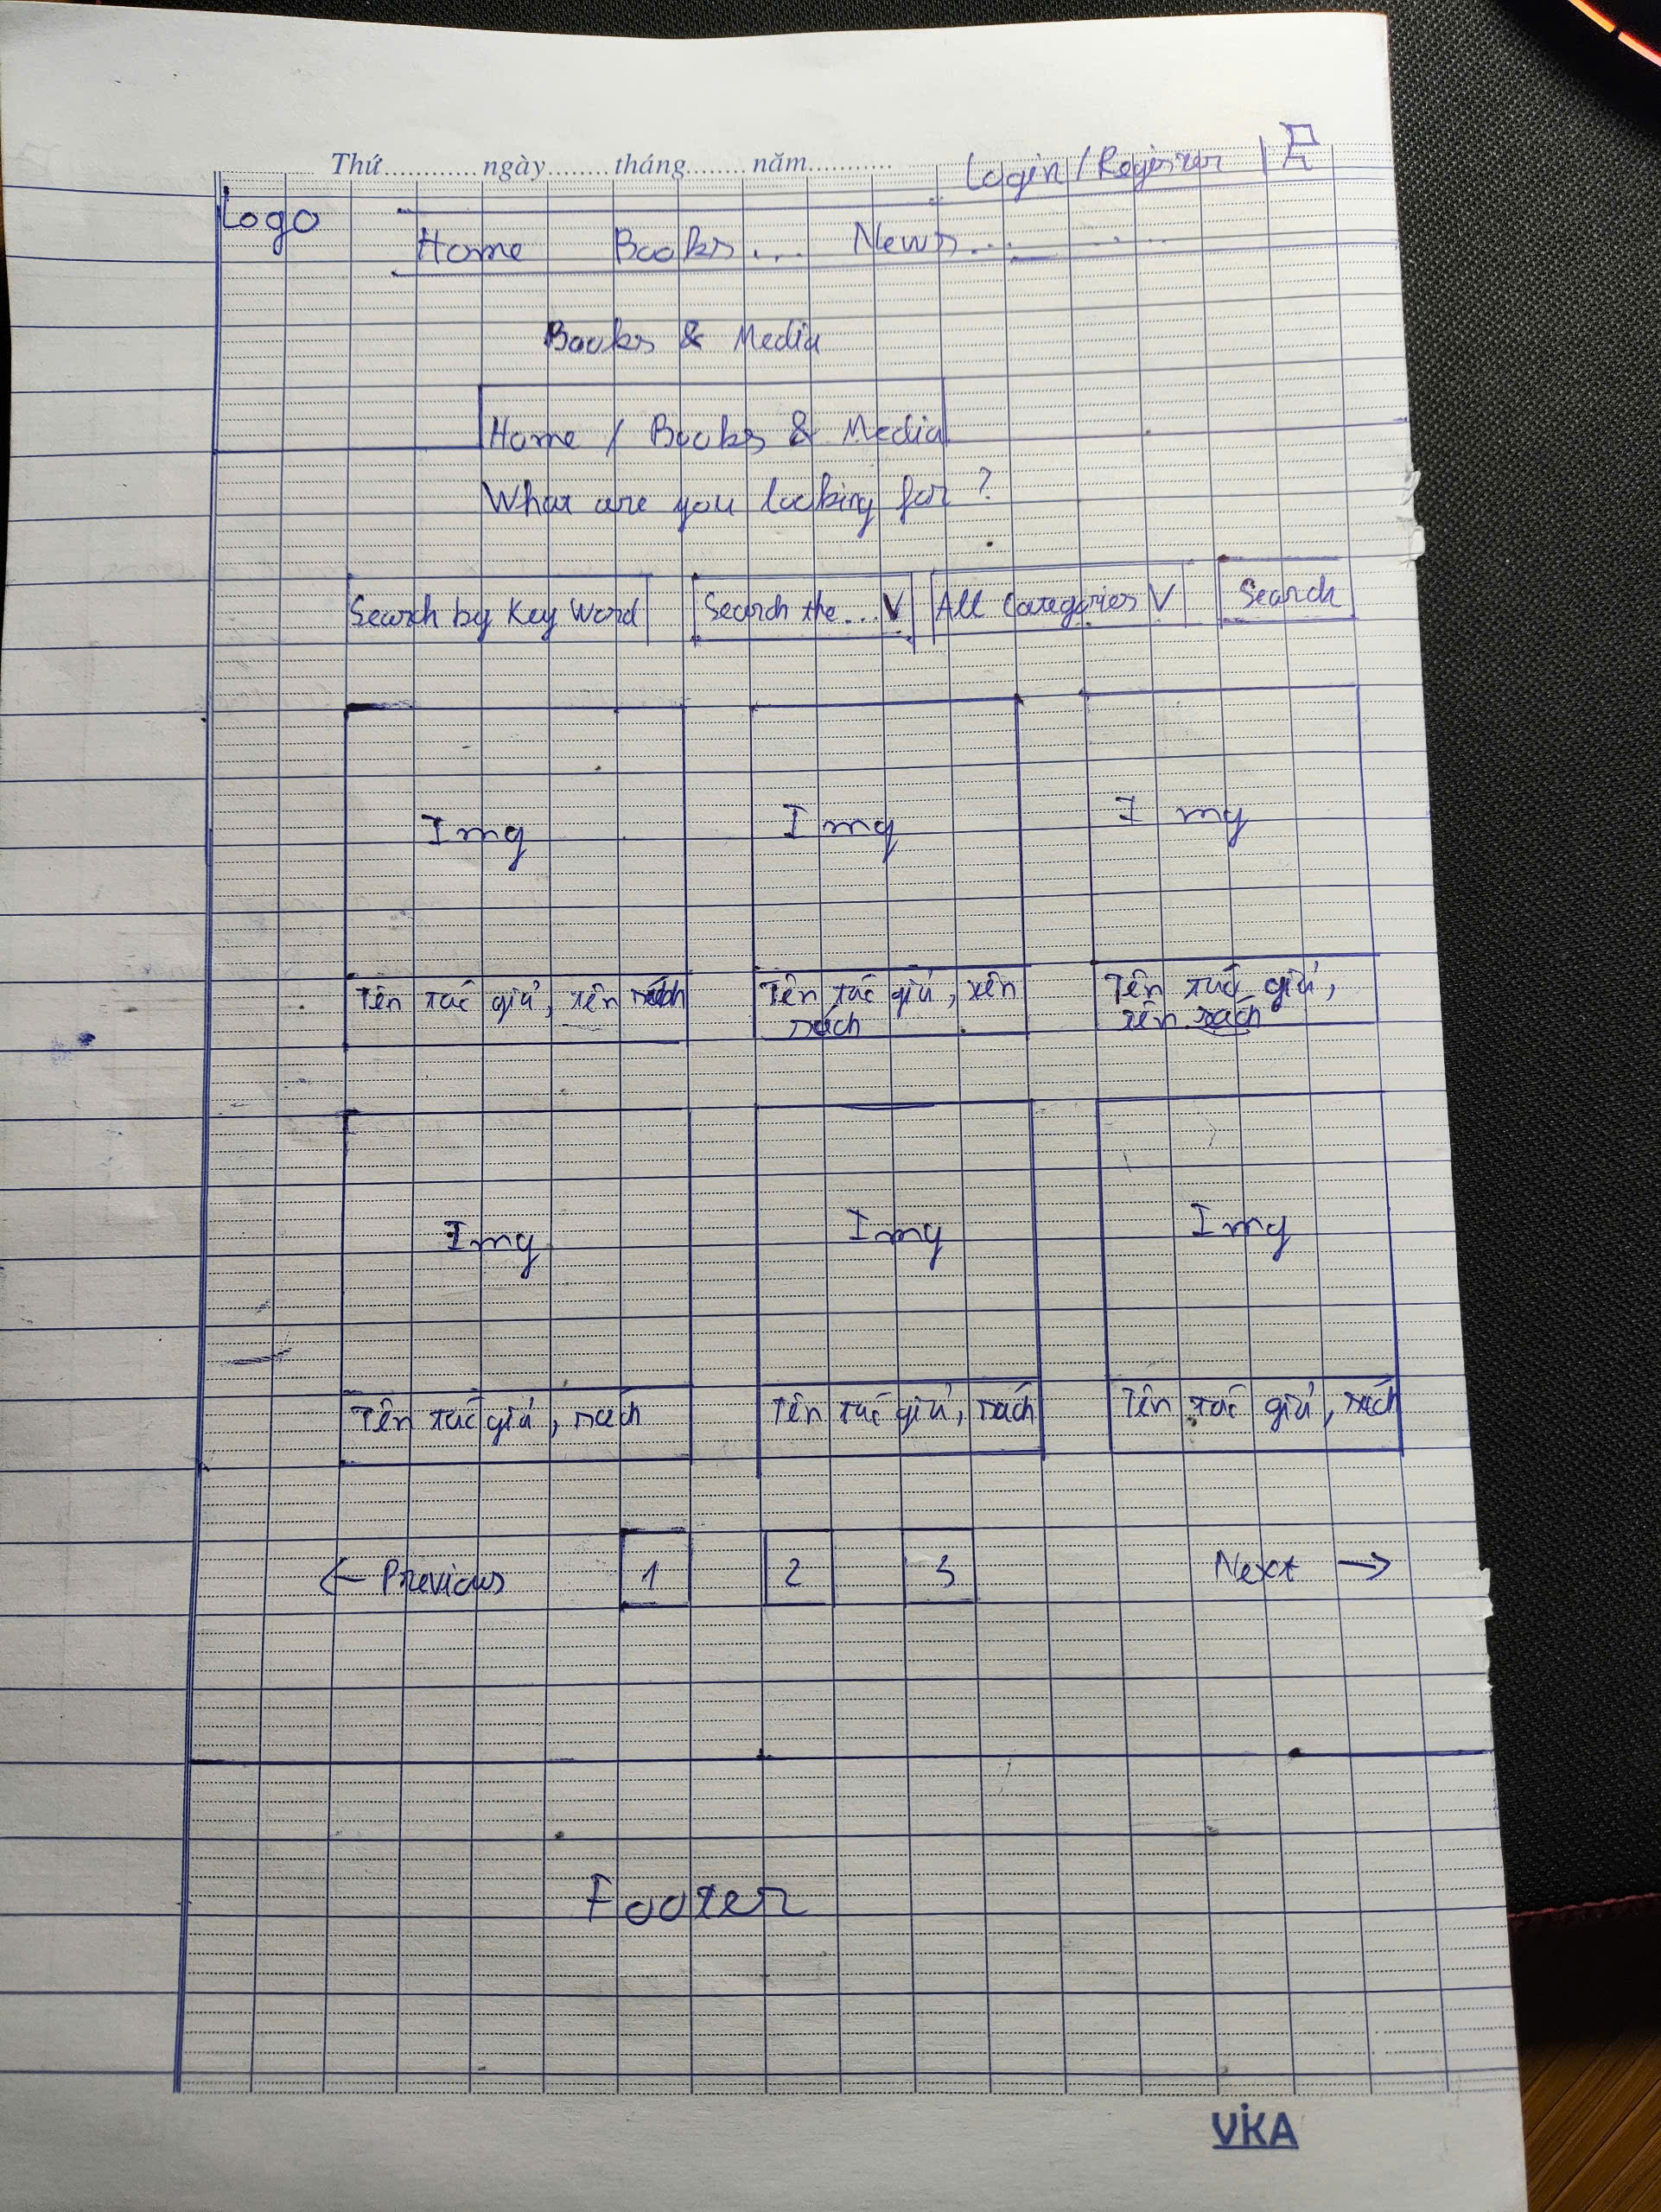 Thứ............ngày........tháng.......năm...........
Login / Register |
Logo
Home Books... News...
Books & Media
Home / Books & Media
What are you looking for ?
Search by Key Word Search the... V All Categories V Search
Img Img Img
Tên tác giả, tên sách Tên tác giả, tên sách Tên tác giả, tên sách
Img Img Img
Tên tác giả, sách Tên tác giả, sách Tên tác giả, sách
← Previous 1 2 3 Next →
Footer
ViKA